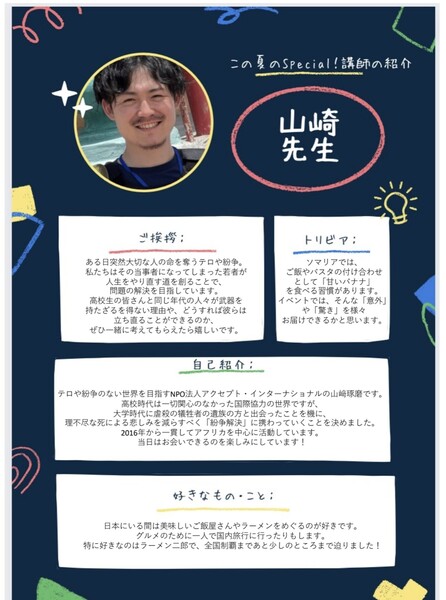 この夏のSpecial!講師の紹介
山崎
先生
ご挨拶;
ある日突然大切な人の命を奪うテロや紛争。
私たちはその当事者になってしまった若者が
人生をやり直す道を創ることで、
問題の解決を目指しています。
高校生の皆さんと同じ年代の人々が武器を
持たざるを得ない理由や、どうすれば彼らは
立ち直ることができるのか、
ぜひ一緒に考えてもらえたら嬉しいです。
トリビア;
ソマリアでは、
ご飯やパスタの付け合わせ
として「甘いバナナ」
を食べる習慣があります。
イベントでは、そんな「意外」
や「驚き」を様々
お届けできるかと思います。
自己紹介;
テロや紛争のない世界を目指すNPO法人アクセプト・インターナショナルの山﨑琢磨です。
高校時代は一切関心のなかった国際協力の世界ですが、
大学時代に虐殺の犠牲者の遺族の方と出会ったことを機に、
理不尽な死による悲しみを減らすべく「紛争解決」に携わっていくことを決めました。
2016年から一貫してアフリカを中心に活動しています。
当日はお会いできるのを楽しみにしています！
好きなもの・こと;
日本にいる間は美味しいご飯屋さんやラーメンをめぐるのが好きです。
グルメのために一人で国内旅行に行ったりもします。
特に好きなのはラーメン二郎で、全国制覇まであと少しのところまで迫りました！